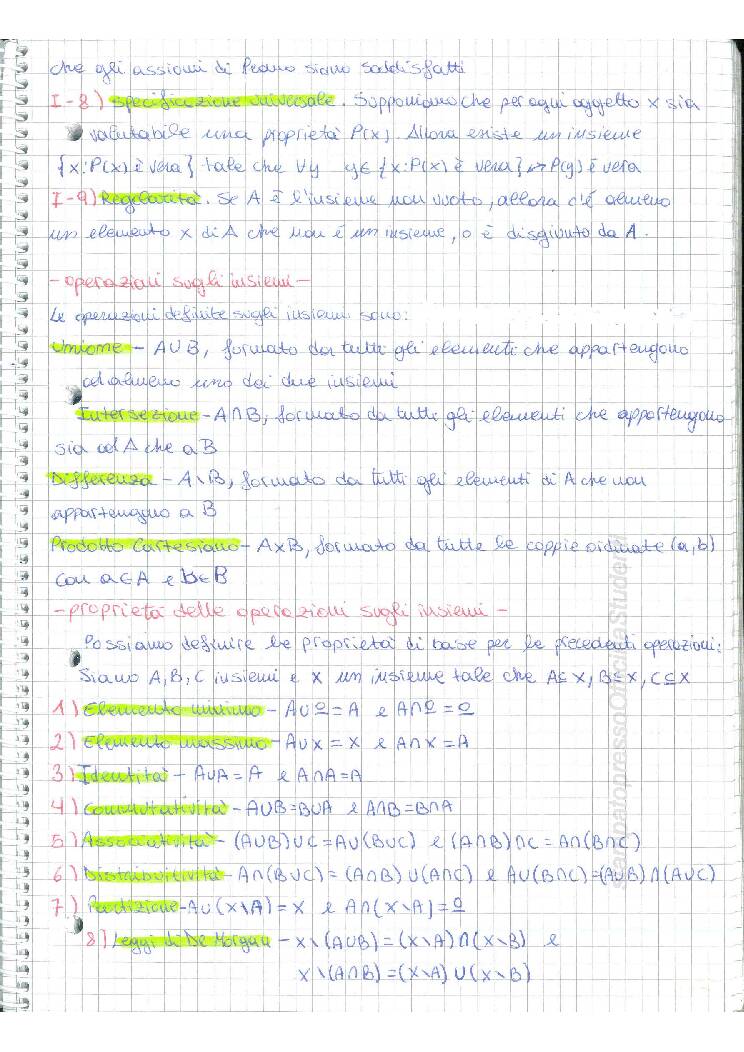 che gli assiomi di Peano siano soddisfatti
I-8) Specificazione universale. Supponiamo che per ogni oggetto x sia
valutabile una proprietà P(x). Allora esiste un insieme
{x:P(x) è vera} tale che ∀y y∈{x:P(x) è vera}↔P(y) è vera
I-9) Regolarità. Se A è l'insieme non vuoto, allora c'è almeno
un elemento x di A che non è un insieme, o è disgiunto da A.
-operazioni sugli insiemi-
Le operazioni definite sugli insiemi sono:
Unione - A∪B, formato da tutti gli elementi che appartengono
ad almeno uno dei due insiemi
Intersezione - A∩B, formato da tutti gli elementi che appartengono
sia ad A che a B
Differenza - A\B, formato da tutti gli elementi di A che non
appartengono a B
Prodotto Cartesiano - A×B, formato da tutte le coppie ordinate (a,b)
con a∈A e b∈B
-proprietà delle operazioni sugli insiemi-
Possiamo definire le proprietà di base per le precedenti operazioni:
Siano A,B,C insiemi e X un insieme tale che A⊆X, B⊆X, C⊆X
1) Elemento minimo - A∪∅=A e A∩∅=∅
2) Elemento massimo - A∪X=X e A∩X=A
3) Identità - A∪A=A e A∩A=A
4) Commutatività - A∪B=B∪A e A∩B=B∩A
5) Associatività - (A∪B)∪C=A∪(B∪C) e (A∩B)∩C=A∩(B∩C)
6) Distributività - A∩(B∪C)=(A∩B)∪(A∩C) e A∪(B∩C)=(A∪B)∩(A∪C)
7) Partizione - A∪(X\A)=X e A∩(X\A)=∅
8) Leggi di De Morgan - X\(A∪B)=(X\A)∩(X\B) e
X\(A∩B)=(X\A)∪(X\B)
stampatopressoOfficinaStudenti